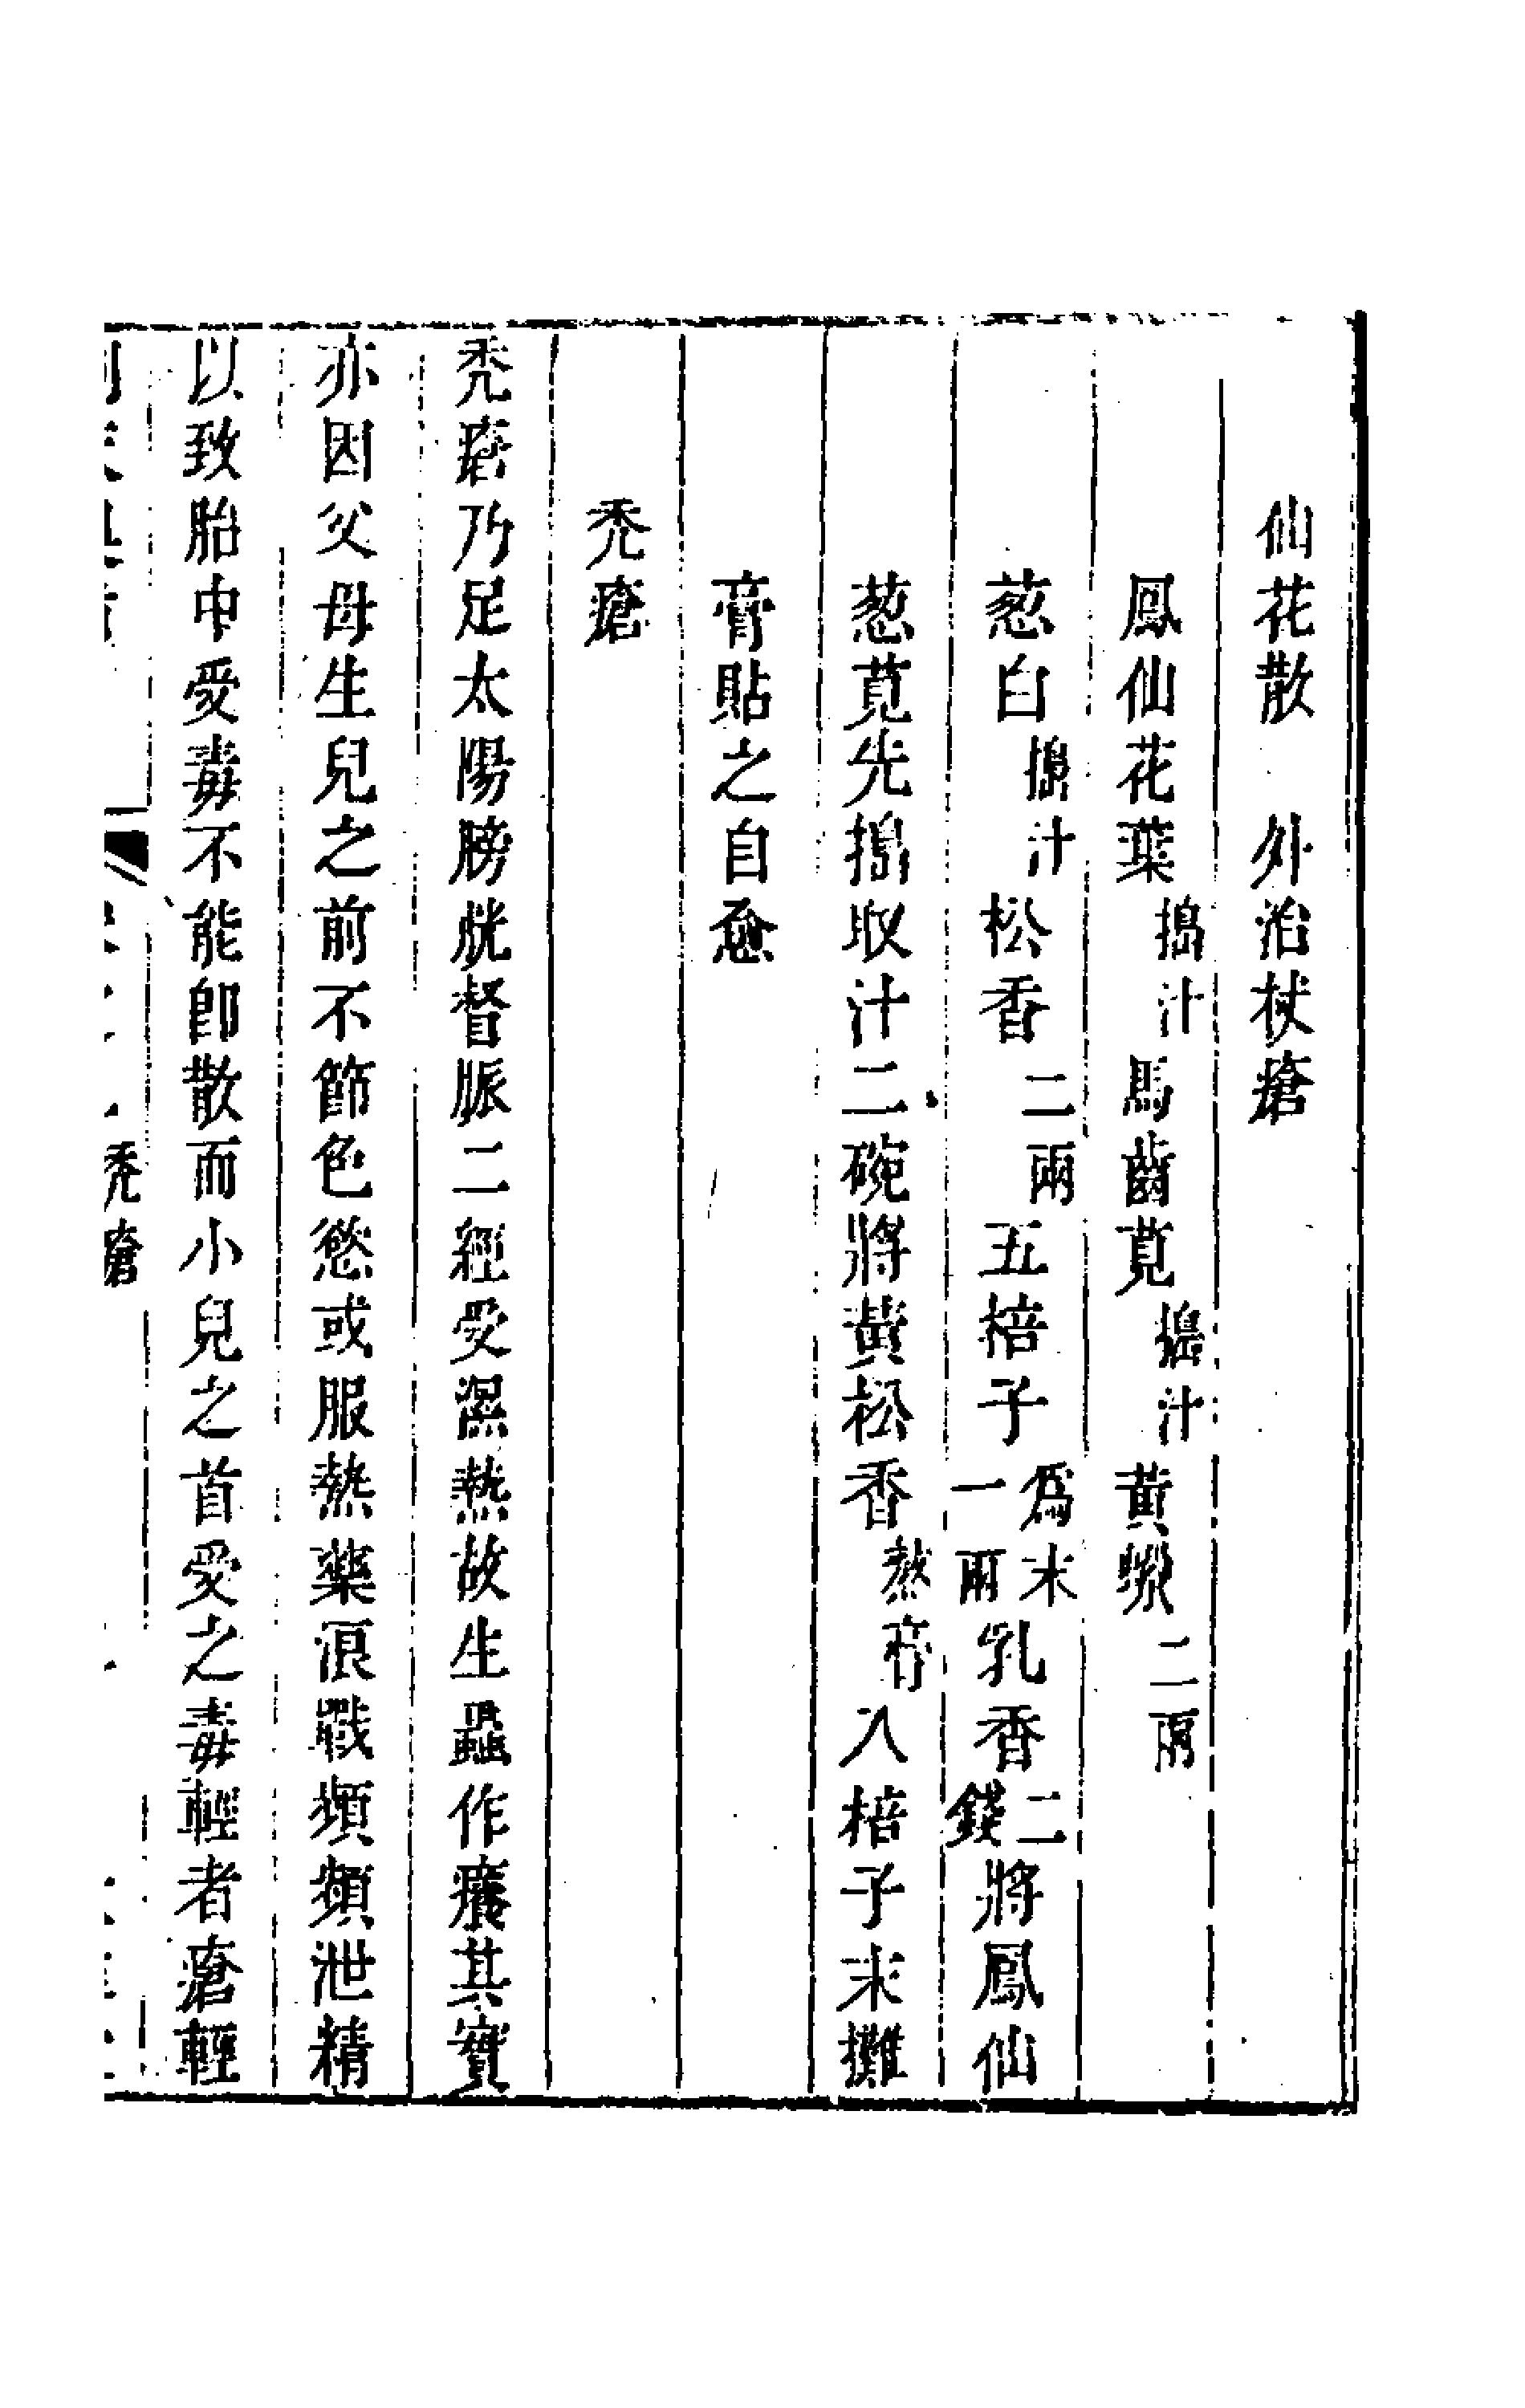 仙花散　外治杖瘡
鳳仙花葉搗汁馬齒莧搗汁黃蠟二兩
葱白搗汁松香二兩五棓子爲末一兩乳香二錢將鳳仙
葱莧先搗取汁二碗將黃松香熬膏入棓子末攤
膏貼之自愈
禿瘡
禿瘡乃足太陽膀胱督脈二經受濕熱故生蟲作癢其實
亦因父母生兒之前不節色慾或服熱藥浪戰頻頻泄精
以致胎中受毒不能卽散而小兒之首受之毒輕者瘡輕
禿瘡